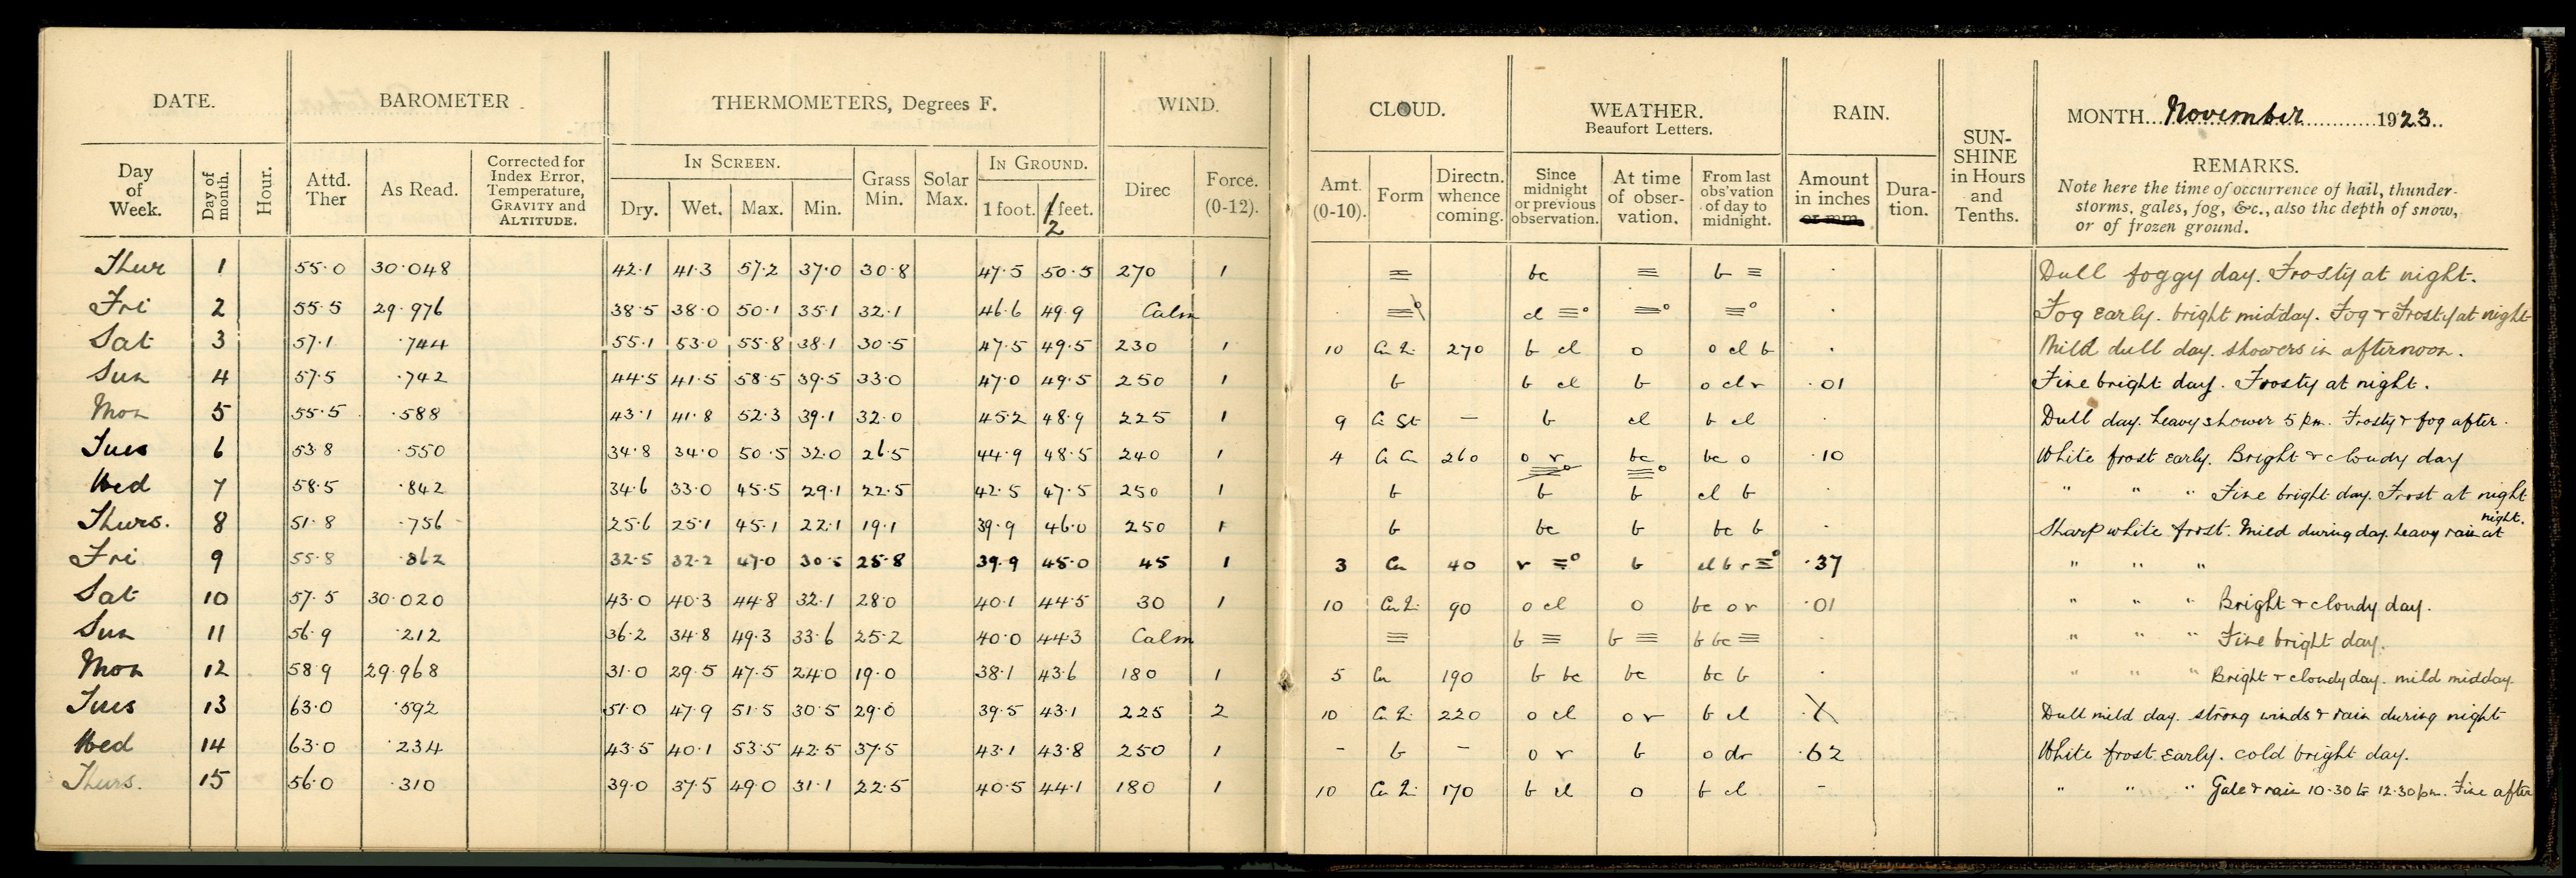 DATE. BAROMETER THERMOMETERS, Degrees F. WIND. CLOUD. WEATHER. Beaufort Letters. RAIN. SUN-SHINE in Hours and Tenths. MONTH November 1923
Day of Week. Day of month. Hour. Attd. Ther As Read. Corrected for Index Error, Temperature, GRAVITY and ALTITUDE. IN SCREEN. Dry. Wet. Max. Min. Grass Min. Solar Max. IN GROUND. 1 foot. 2 feet. Direc Force. (0-12). Amt. (0-10). Form Directn. whence coming. Since midnight or previous observation. At time of obser-vation. From last obs'vation of day to midnight. Amount in inches or mm. Dura-tion. REMARKS.
Note here the time of occurrence of hail, thunder-
storms, gales, fog, &c., also the depth of snow,
or of frozen ground.
Thur 1 55.0 30.048 42.1 41.3 57.2 37.0 30.8 47.5 50.5 270 1 ≡ bc ≡ b ≡ . Dull foggy day. Frosty at night.
Fri 2 55.5 29.976 38.5 38.0 50.1 35.1 32.1 46.6 49.9 Calm . ≡° cl ≡° ≡° ≡° . Fog early. bright midday. Fog & Frosty at night
Sat 3 57.1 .744 55.1 53.0 55.8 38.1 30.5 47.5 49.5 230 1 10 270 b cl o o cl b . Mild dull day. showers in afternoon.
Sun 4 57.5 .742 44.5 41.5 58.5 39.5 33.0 47.0 49.5 250 1 b b cl b o cl r .01 Fine bright day. Frosty at night.
Mon 5 55.5 .588 43.1 41.8 52.3 39.1 32.0 45.2 48.9 225 1 9 Ci St — b cl b cl . Dull day. heavy shower 5 pm. Frosty & fog after.
Tues 6 53.8 .550 34.8 34.0 50.5 32.0 26.5 44.9 48.5 240 1 4 Ci Cu 260 o r ≡° bc ≡° bc o .10 White frost early. Bright & cloudy day
Wed 7 58.5 .842 34.6 33.0 45.5 29.1 22.5 42.5 47.5 250 1 b b b cl b . " " " Fine bright day. Frost at night
Thurs. 8 51.8 .756 25.6 25.1 45.1 22.1 19.1 39.9 46.0 250 1 b bc b bc b . Sharp white frost. Mild during day. heavy rain at night.
Fri 9 55.8 .862 32.5 32.2 47.0 30.5 25.8 39.9 45.0 45 1 3 Cu 40 r ≡° b cl b r ≡° .37 " " "
Sat 10 57.5 30.020 43.0 40.3 44.8 32.1 28.0 40.1 44.5 30 1 10 90 o cl o bc o r .01 " " " Bright & cloudy day.
Sun 11 56.9 .212 36.2 34.8 49.3 33.6 25.2 40.0 44.3 Calm ≡ b ≡ b ≡ b bc ≡ . " " " Fine bright day.
Mon 12 58.9 29.968 31.0 29.5 47.5 24.0 19.0 38.1 43.6 180 1 5 Cu 190 b bc bc bc b . " " " Bright & cloudy day. mild midday
Tues 13 63.0 .592 51.0 47.9 51.5 30.5 29.0 39.5 43.1 225 2 10 220 o cl o r b cl Dull mild day. strong winds & rain during night
Wed 14 63.0 .234 43.5 40.1 53.5 42.5 37.5 43.1 43.8 250 1 - b - o r b o dr .62 White frost early. cold bright day.
Thurs. 15 56.0 .310 39.0 37.5 49.0 31.1 22.5 40.5 44.1 180 1 10 170 b cl o b cl - " " " Gale & rain 10.30 to 12.30 pm. Fine after